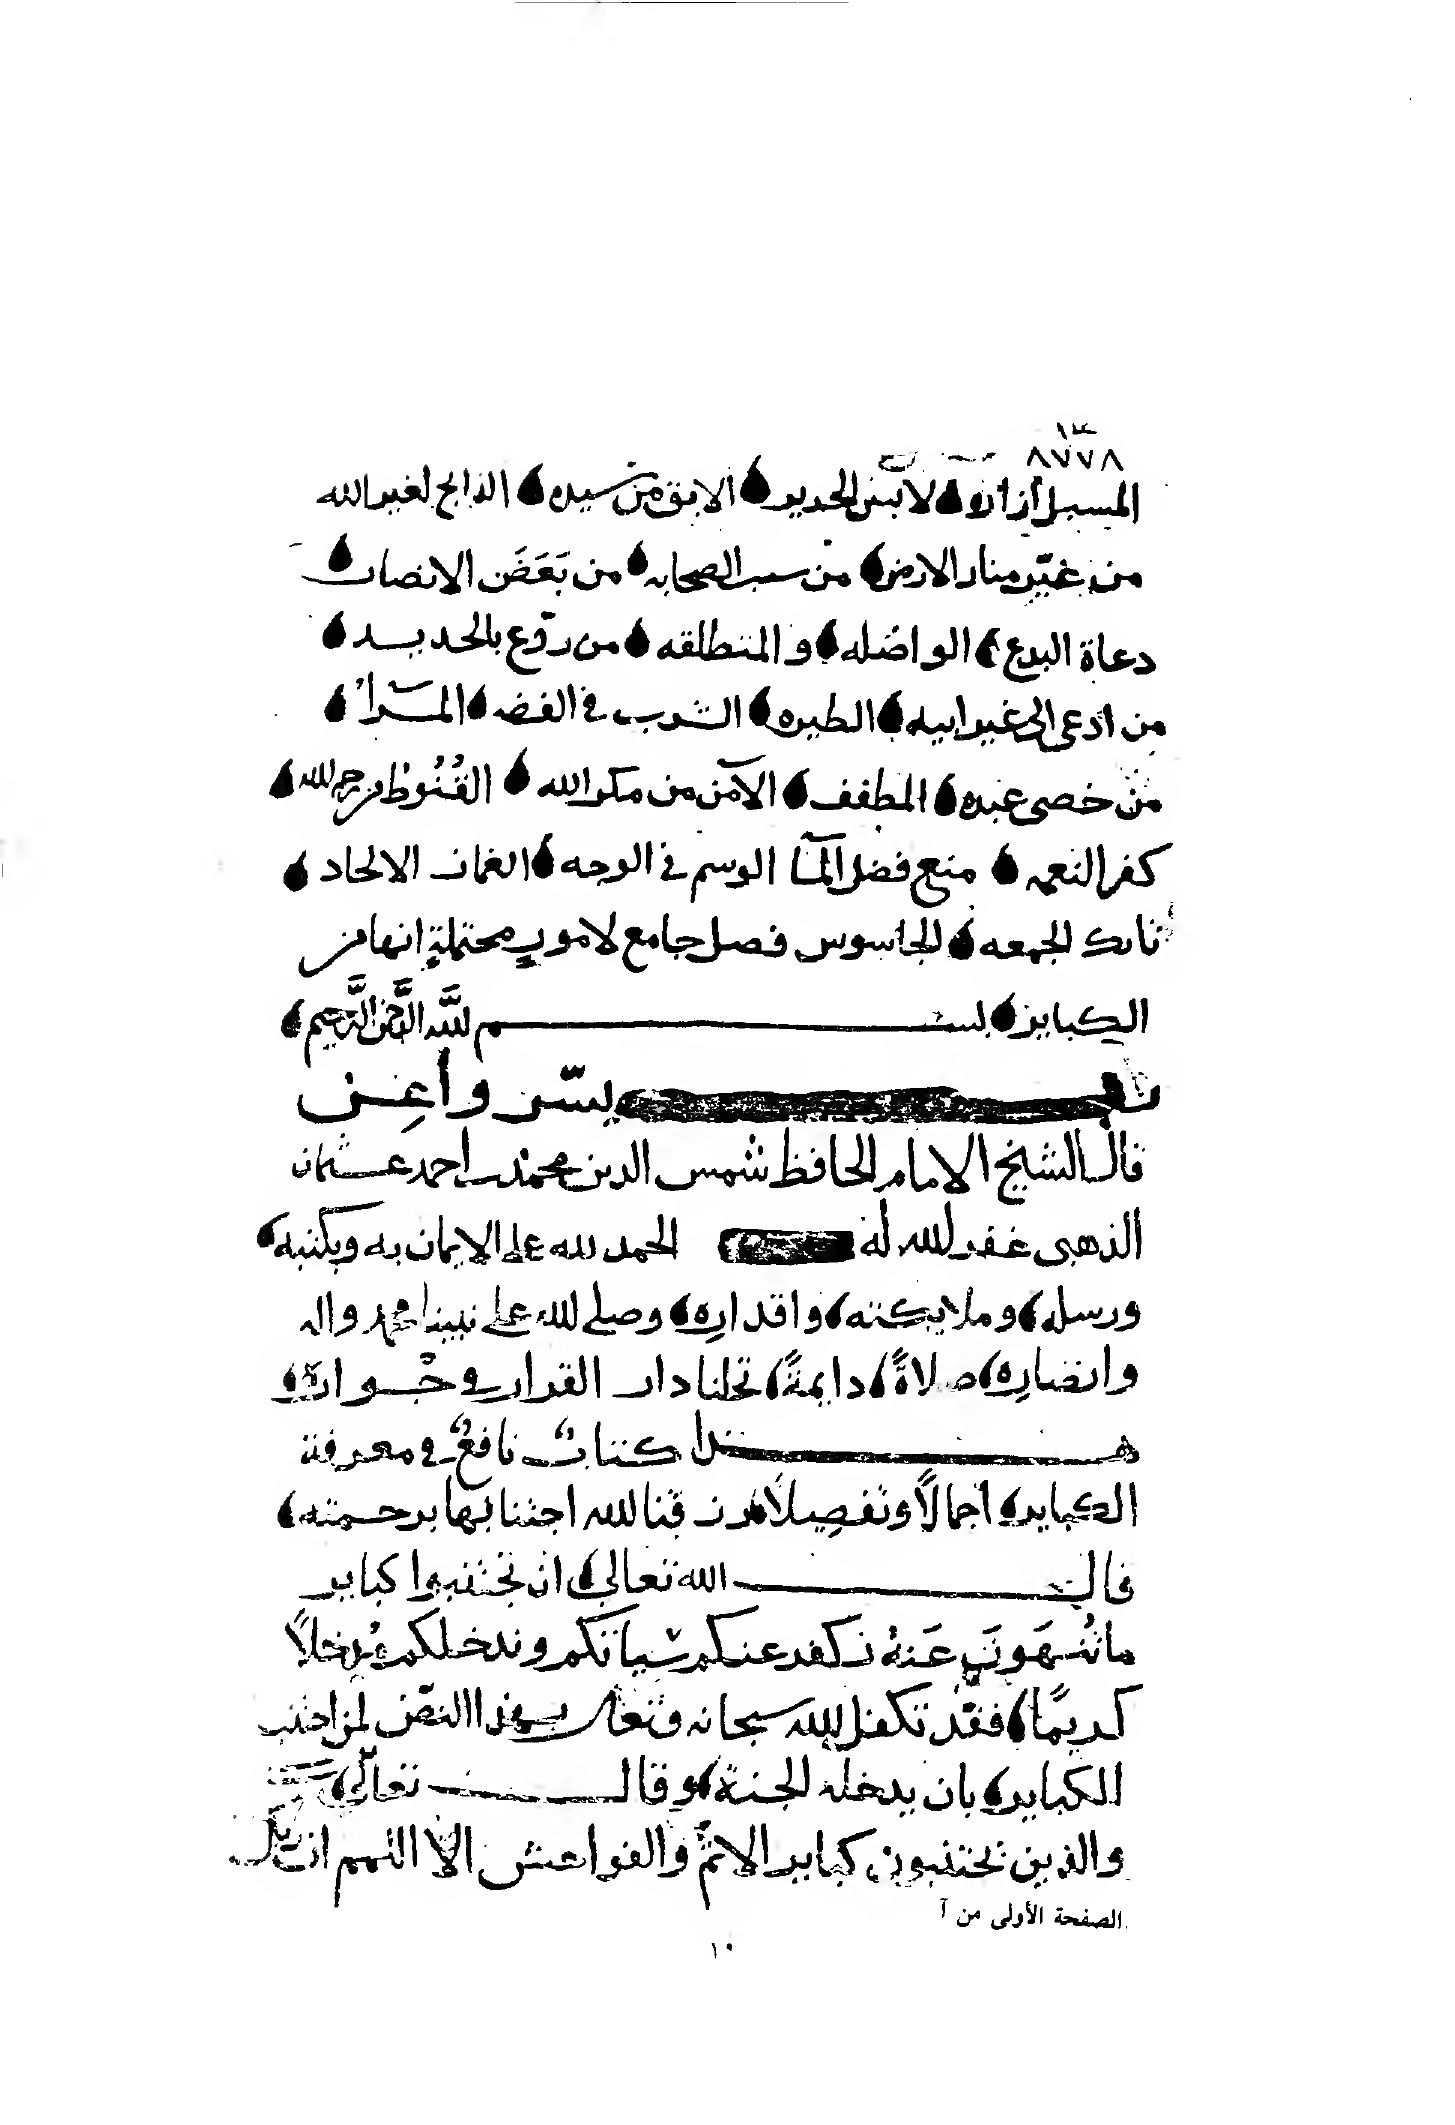 ٨٧٧٨
المسبل ازاره لابس الحرير الابق من سيده الذابح لغير الله
من غيّر منار الارض من سب الصحابه من بَعَضَ الانصار
دعاة البدع الواصله والمتطلقه من روّع بالحديد
من ادعى الى غير ابيه الطيره الشرب في الفضه المرآ
من خصى عبده المطفف الآمن من مكر الله القُنُوط من رحمه الله
كفر النعمه منع فضل المآ الوسم في الوجه القمار الالحاد
تارك الجمعه الجاسوس فصل جامع لامورٍ محتملةٍ انها من
الكباير بسم الله الرَّحمن الرَّحيم
يسّر وأعِن
قال الشيخ الامام الحافظ شمس الدين محمد بن احمد عثمان
الذهبى غفر الله له الحمد لله على الايمان به وبكتبه
ورسله وملايكته واقداره وصلى الله على نبينا محمد واله
وانصاره صلاةً دايمةً تحلنا دار القرار في جواره
هذا كتابٌ نافعٌ في معرفة
الكباير اجمالاً وتفصيلاً رزقنا الله اجتنابها برحمته
قال الله تعالى ان تجتنبوا كباير
ما تُنهَونَ عَنهُ نكفر عنكم سياتكم وندخلكم مُدخلاً
كريمًا فقد تكفل الله سبحانه وتعالى بهذا النصّ لمن اجتنب
الكباير بان يدخله الجنة وقال تعالى
والذين يجتنبون كباير الاثم والفواحش الا اللمم ان ربك
الصفحة الأولى من آ
١٠